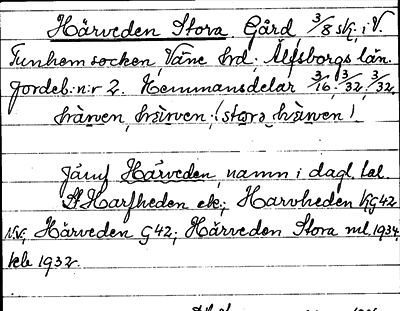 Härveden Stora. Gård 3/8 sk. i V.
Tunhem socken, Väne hrd. Älfsborgs län.
Jordeb: n:r 2. Hemmansdelar 3/16, 3/32, 3/32.
(stora
Jämf Härveden, namn i dagl. tal.
Harfheden ek; Harvheden Kg 42
N.V; Härveden G 42; Härveden Stora ml. 1934,
1932.